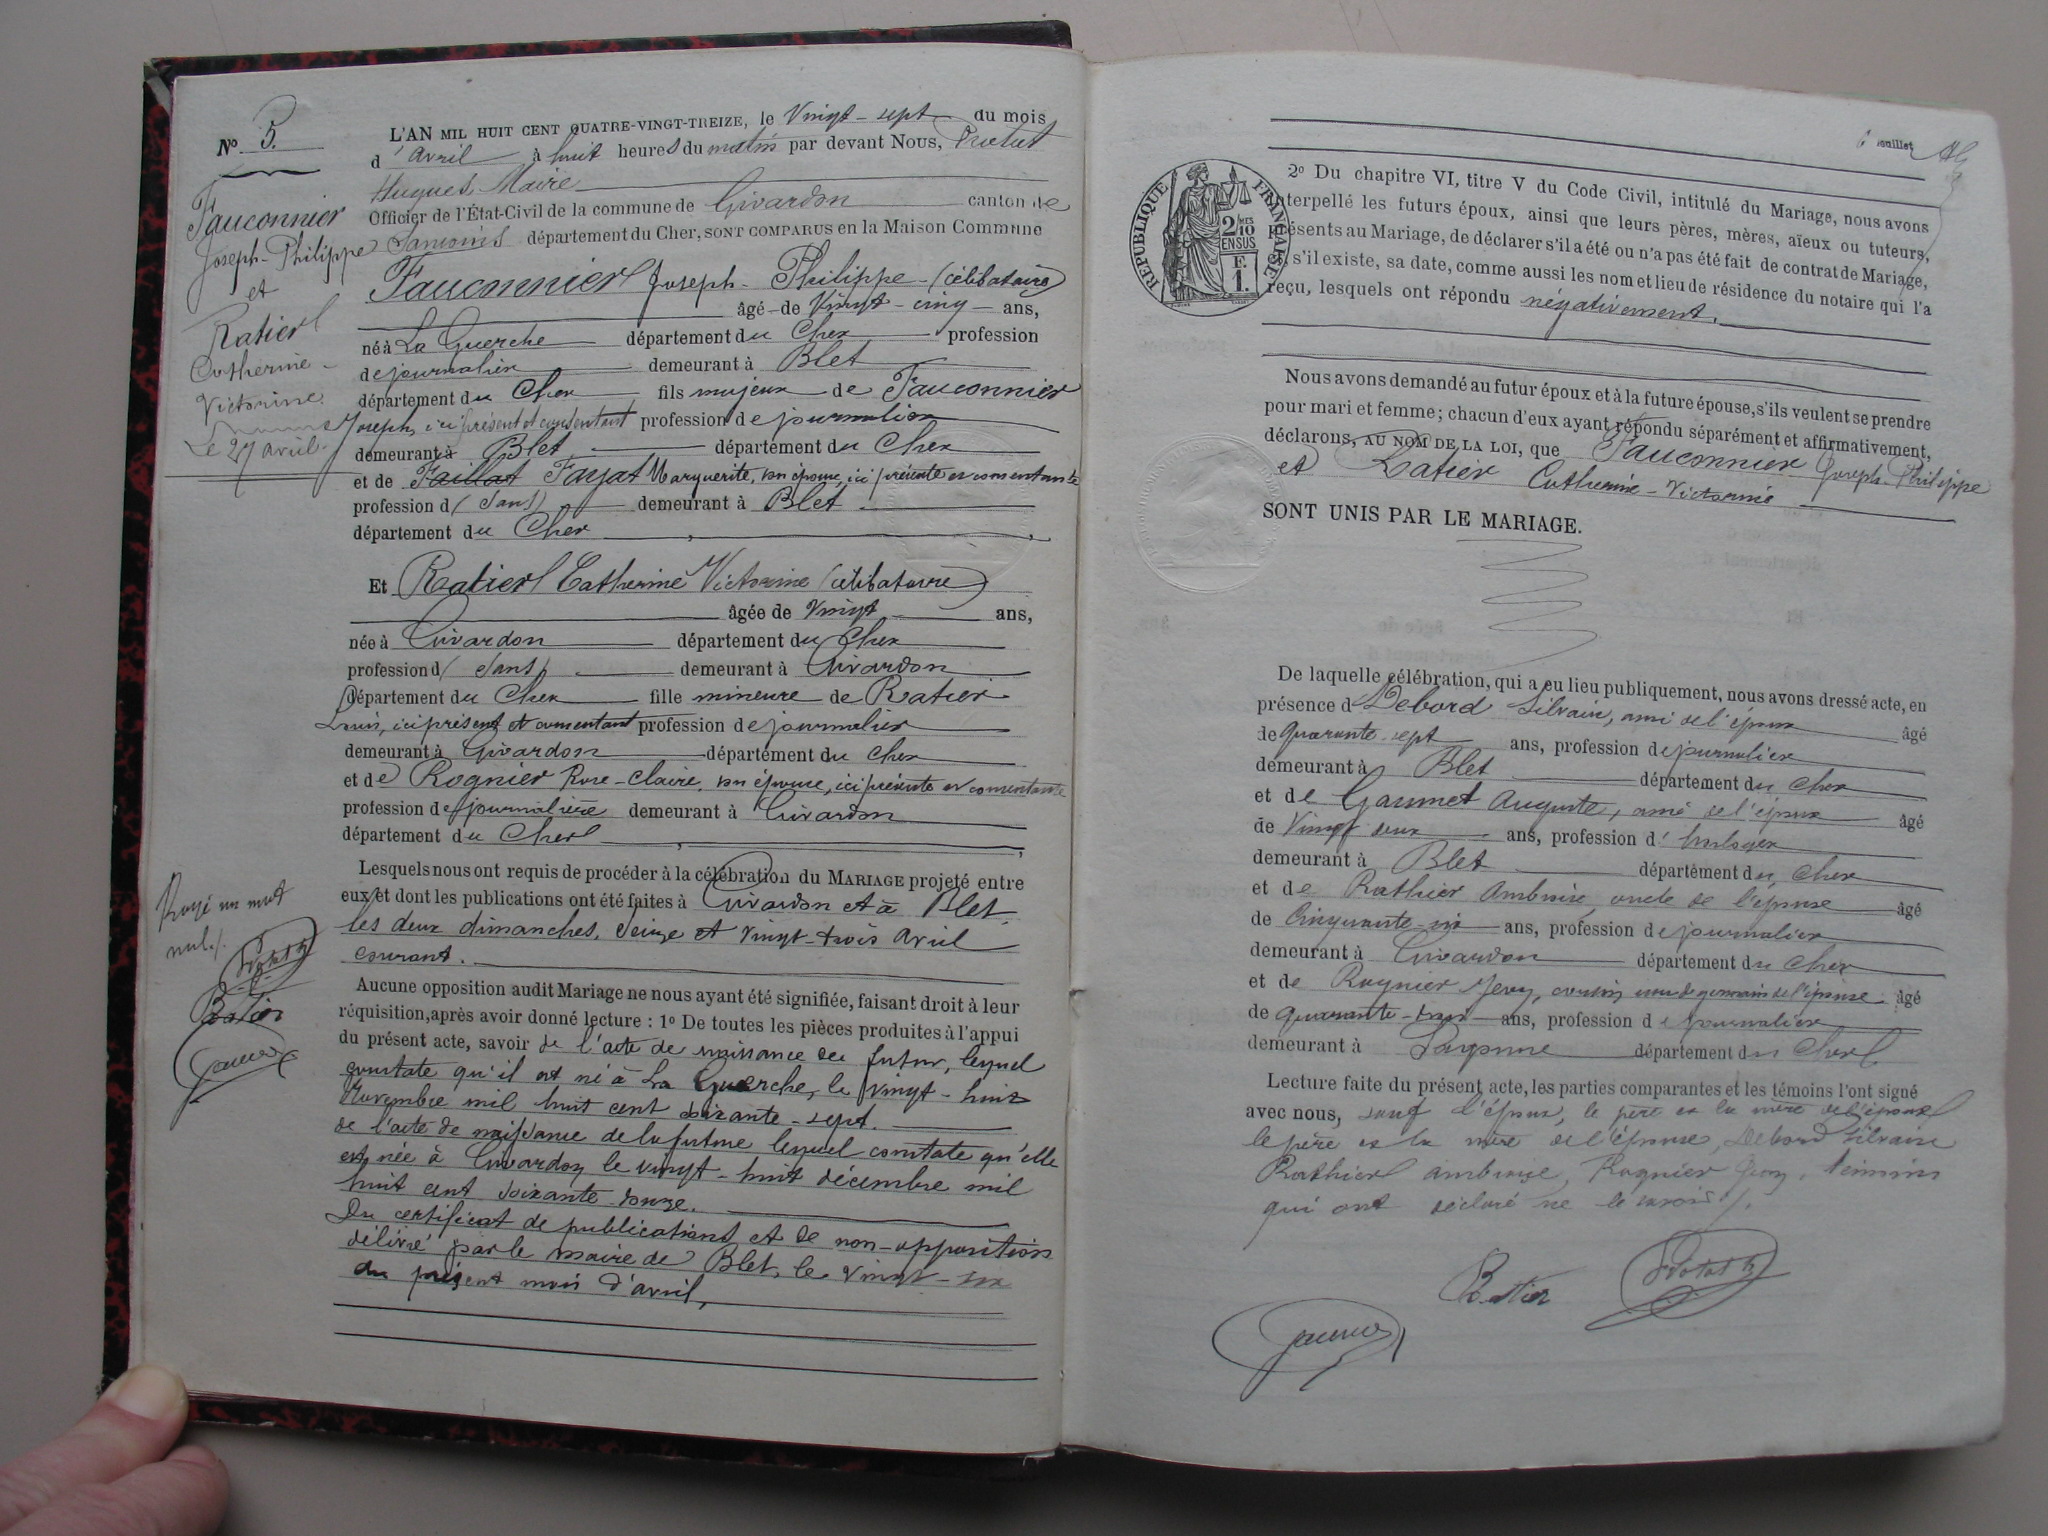 N° 5.
Fauconnier
Joseph-Philippe
et
Ratier
Catherine-
Victorine
Le 27 avril.
L'AN MIL HUIT CENT QUATRE-VINGT-TREIZE, le Vingt-sept du mois
d'avril à huit heures du matin par devant Nous,
Hugues, Maire
Officier de l'État-Civil de la commune de Givardon canton de
Sancoins département du Cher, SONT COMPARUS en la Maison Commune
Fauconnier Joseph-Philippe-(célibataire)
âgé de Vingt-cinq ans,
né à La Guerche département du Cher profession
de journalier demeurant à Blet
département du Cher fils majeur de Fauconnier
Joseph, ici présent et consentant profession de journalier
demeurant à Blet département du Cher
et de Faillat Fayat Marguerite, son épouse, ici présente et consentante
profession d (sans) demeurant à Blet
département du Cher
Et Ratier Catherine Victorine (célibataire)
âgée de Vingt ans,
née à Givardon département du Cher
profession d (sans) demeurant à Givardon
département du Cher fille mineure de Ratier
Louis, ici présent et consentant profession de journalier
demeurant à Givardon département du Cher
et de Rognier Rose-Claire, son épouse, ici présente et consentante
profession de journalière demeurant à Givardon
département du Cher
Lesquels nous ont requis de procéder à la célébration du MARIAGE projeté entre
eux et dont les publications ont été faites à Givardon et à Blet
les deux dimanches, seize et vingt-trois avril
courant.
Aucune opposition audit Mariage ne nous ayant été signifiée, faisant droit à leur
réquisition, après avoir donné lecture : 1° De toutes les pièces produites à l'appui
du présent acte, savoir de l'acte de naissance du futur, lequel
constate qu'il est né à La Guerche, le vingt-huit
Novembre mil huit cent soixante-sept.
de l'acte de naissance de la future lequel constate qu'elle
est née à Givardon le vingt-huit décembre mil
huit cent soixante-douze.
Du certificat de publications et de non-opposition
délivré par le maire de Blet, le vingt-six
du présent mois d'avril,
Rayé un mot
nul
Ratier
feuillet
RÉPUBLIQUE FRANÇAISE
2 MES
10
EN SUS
F.
1.
2° Du chapitre VI, titre V du Code Civil, intitulé du Mariage, nous avons
interpellé les futurs époux, ainsi que leurs pères, mères, aïeux ou tuteurs,
présents au Mariage, de déclarer s'il a été ou n'a pas été fait de contrat de Mariage,
s'il existe, sa date, comme aussi les nom et lieu de résidence du notaire qui l'a
reçu, lesquels ont répondu négativement.
Nous avons demandé au futur époux et à la future épouse, s'ils veulent se prendre
pour mari et femme ; chacun d'eux ayant répondu séparément et affirmativement,
déclarons, AU NOM DE LA LOI, que Fauconnier Joseph-Philippe
et Ratier Catherine-Victorine
SONT UNIS PAR LE MARIAGE.
De laquelle célébration, qui a eu lieu publiquement, nous avons dressé acte, en
présence d Debord Silvain, ami de l'époux âgé
de quarante-sept ans, profession de journalier
demeurant à Blet département du Cher
et de Gaumet Auguste, ami de l'époux âgé
de Vingt deux ans, profession d'horloger
demeurant à Blet département du Cher
et de Rathier Ambroise, oncle de l'épouse âgé
de Cinquante-six ans, profession de journalier
demeurant à Givardon département du Cher
et de Rognier cousin issu de germain de l'épouse âgé
de quarante-trois ans, profession de journalier
demeurant à département du Cher
Lecture faite du présent acte, les parties comparantes et les témoins l'ont signé
avec nous, sauf l'époux, le père et la mère de l'époux
le père et la mère de l'épouse, Debord Silvain
Rathier ambroise, Rognier témoins
qui ont déclaré ne le savoir.
Ratier